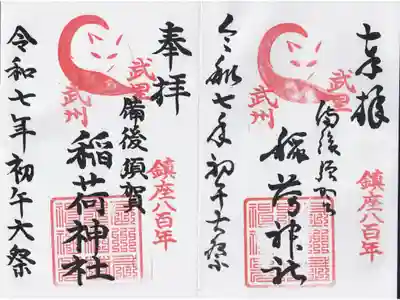 奉拝
鎮座八百年
武里
備後須賀
武州
稲荷神社
令和七年初午大祭
奉拝
鎮座八百年
武里
備後須賀
武州
稲荷神社
令和七年初午大祭